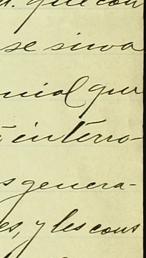 que con
se sirva
nial que
interro-
s genera-
es, y les cons